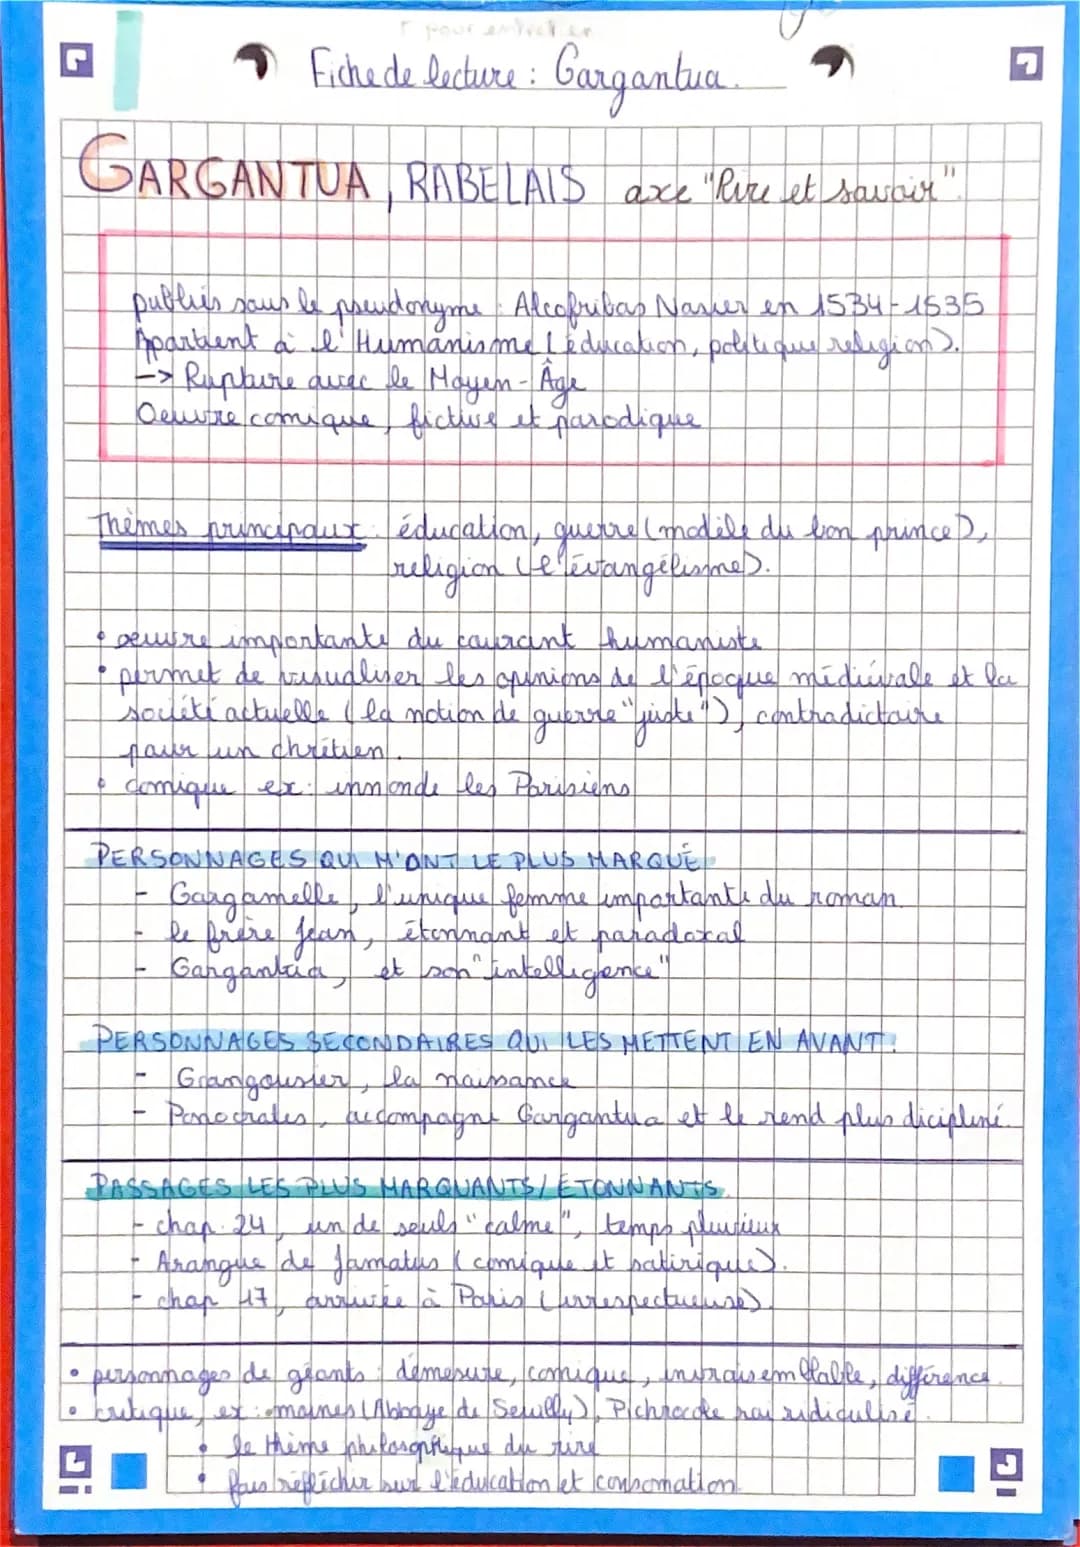 pour entretien
Fiche de lecture : Gargantua.
GARGANTUA, RABELAIS axe "Rire et savoir".
publiés sous le pseudonyme : Alcofribas Nasier en 1534-1535
Apartient à l'Humanisme (éducation, politique, religion).
-> Rupture avec le Moyen-Âge
Oeuvre comique, fictive et parodique
Thèmes principaux : éducation, guerre (modèle du bon prince),
religion (l'évangélisme).
• oeuvre importante du courant humaniste
• permet de visualiser les opinions de l'époque médiévale et la
société actuelle (la notion de guerre "juste"), contradictoire
pour un chrétien.
• comique ex: innonde les Parisiens
PERSONNAGES QUI M'ONT LE PLUS MARQUÉ
- Gargamelle, l'unique femme importante du roman.
- le frère Jean, étonnant et paradoxal
- Gargantua, et son "intelligence"
PERSONNAGES SECONDAIRES QUI LES METTENT EN AVANT:
- Grangousier, la naissance
- Ponocrates, accompagne Gargantua et le rend plus dicipliné.
PASSAGES LES PLUS MARQUANTS/ÉTONNANTS
- chap. 24, un de seuls "calme", temps pluvieux
- Arangue de Jamatus (comique et satirique).
- chap 17, arrivée à Paris (irrespectueuse).
• personnages de géants : démesure, comique, invraisemblable, différence.
• critique, ex : moines (Abbaye de Seuilly), Pichrocole roi ridiculisé.
• le thème philosophique du rire
• fais réfléchir sur l'éducation et consomation.